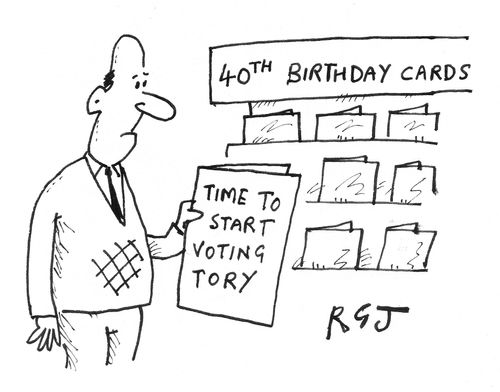 40TH BIRTHDAY CARDS
TIME TO
START
VOTING
TORY
RGJ